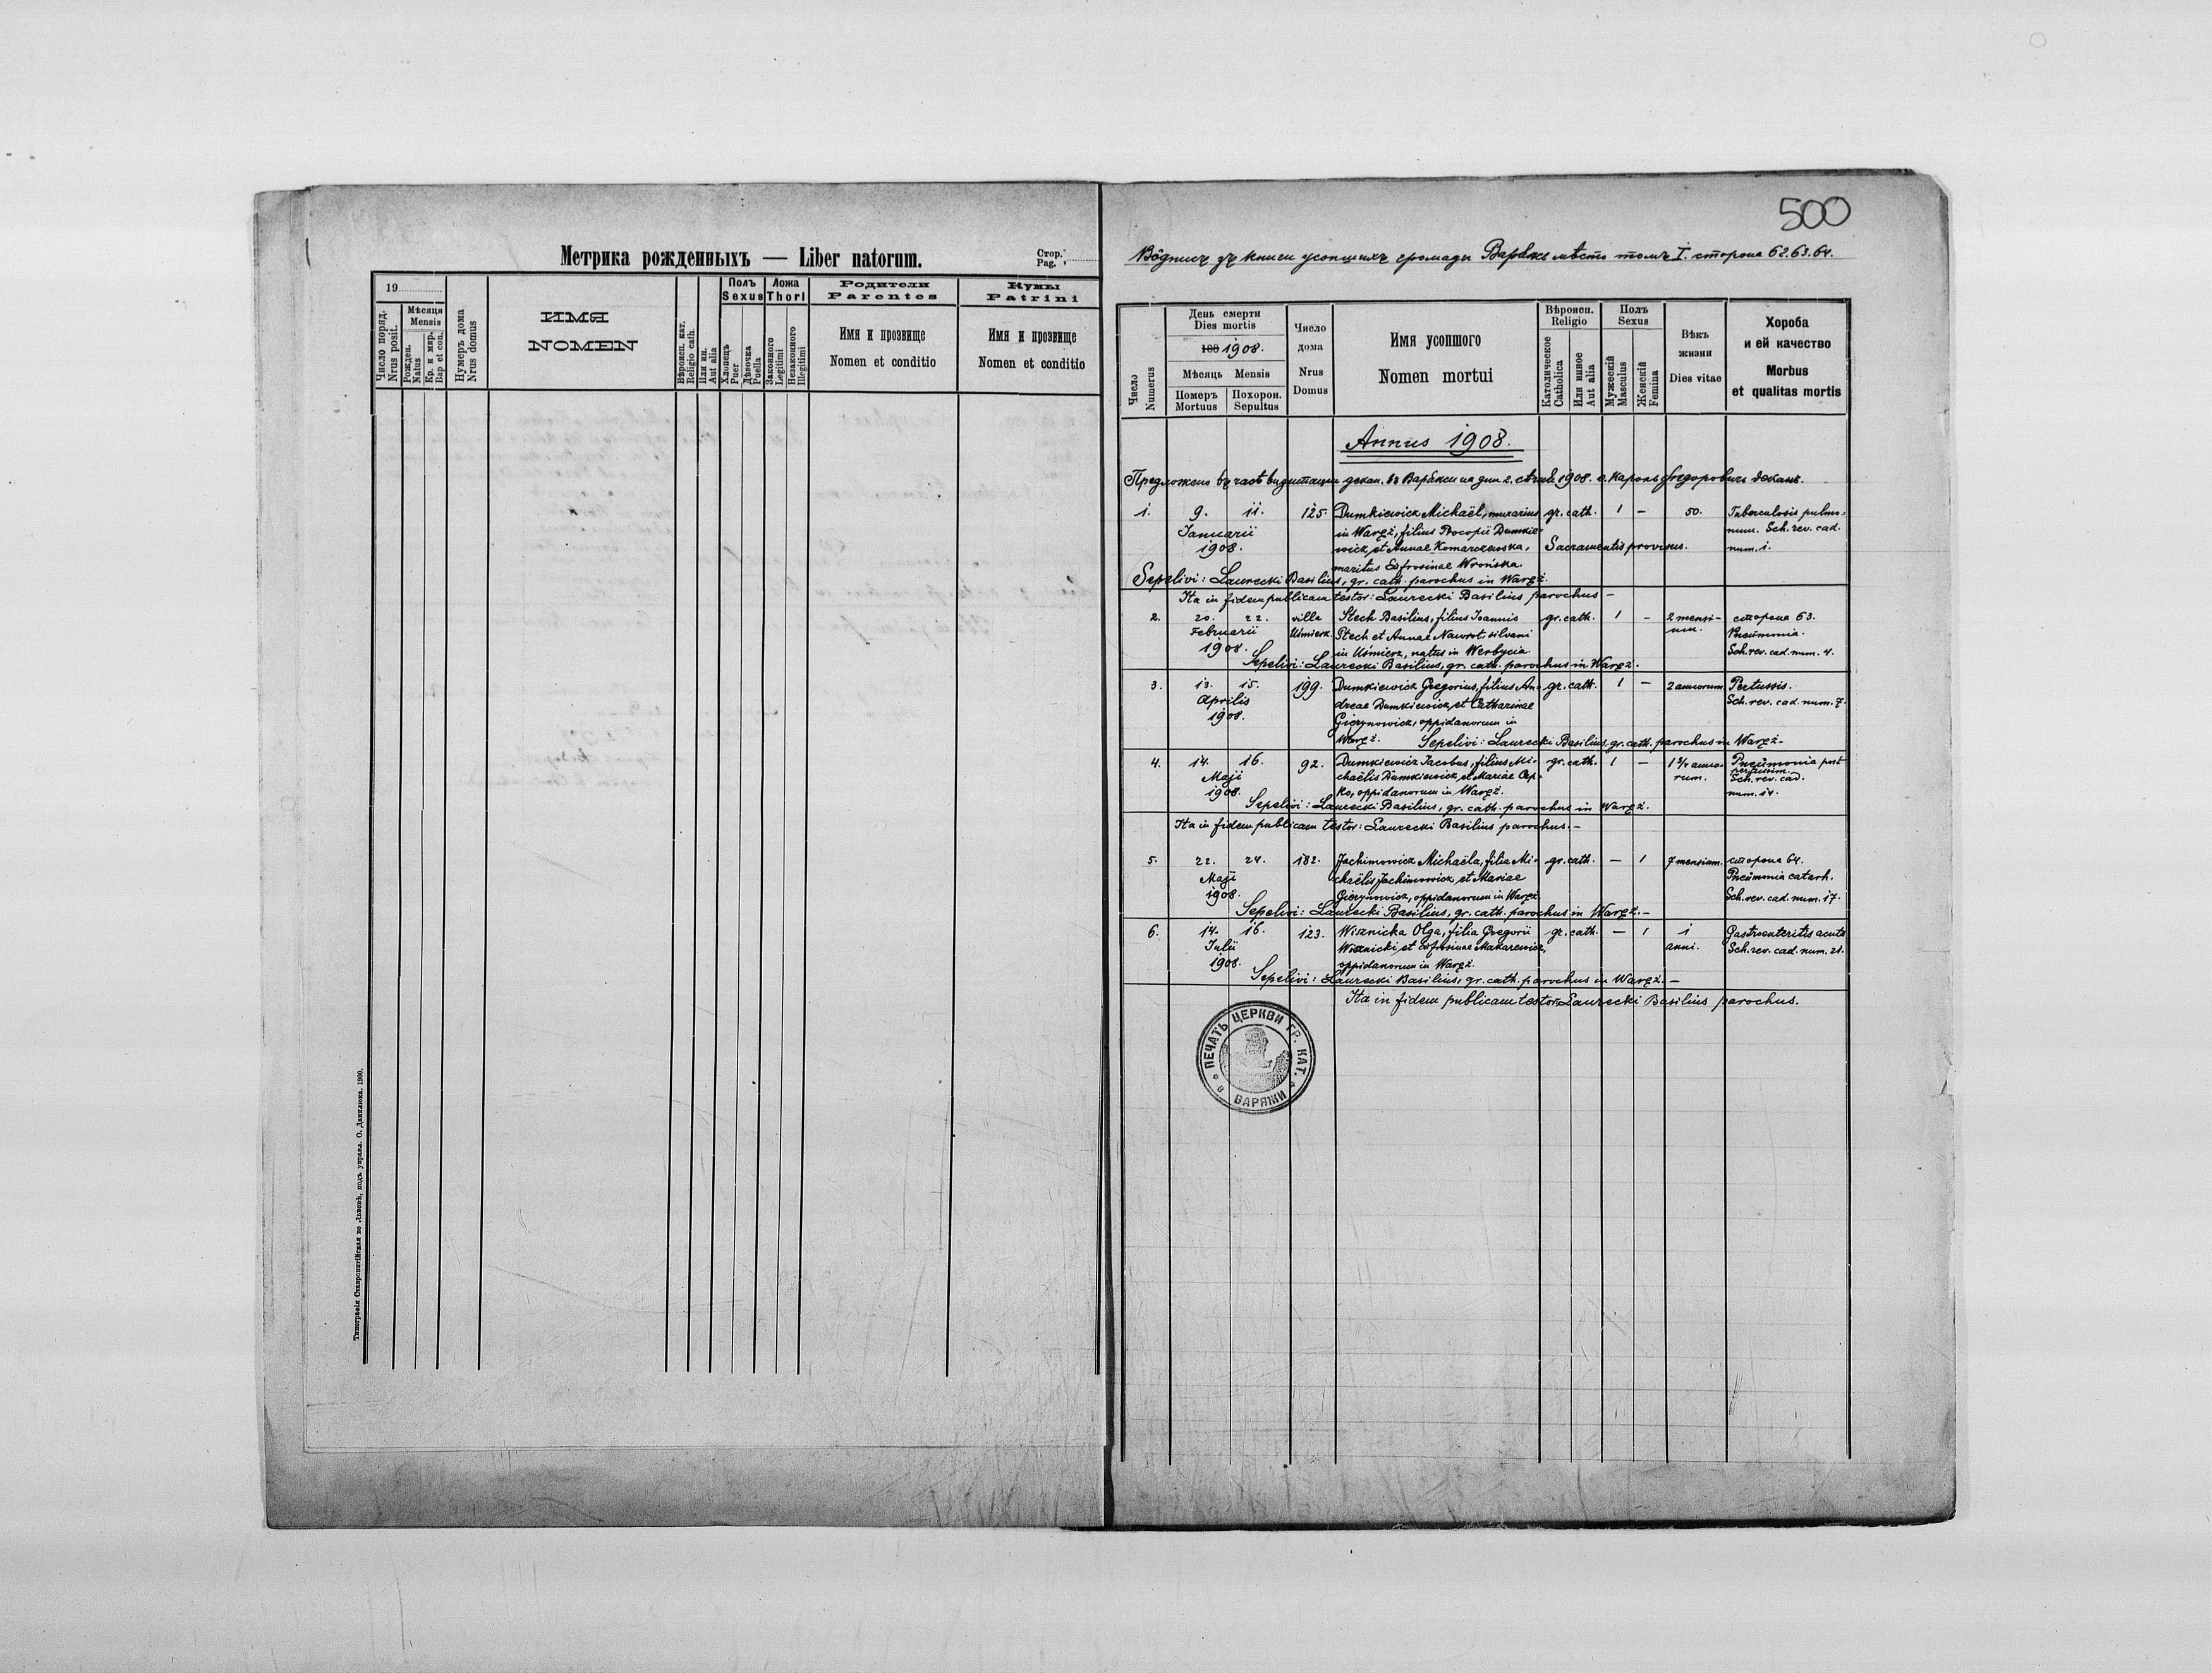 Метрика рожденныхъ — Liber natorum.
Стор.
Pag.
19
Число поряд.
Nrus posit.
Мѣсяця
Mensis
Рожден.
Natus
Кр. и мир.
Bap et con.
Нумеръ дома
Nrus domus
ИМЯ
NOMEN
Вѣроисп. кат.
Religio cath.
Или ин.
Aut alia
Полъ
Sexus
Хлопецъ
Puer
Дѣвочка
Puella
Ложа
Thori
Законного
Legitimi
Незаконного
Illegitimi
Родители
Parentes
Имя и прозвище
Nomen et conditio
Кумы
Patrini
Имя и прозвище
Nomen et conditio
Типографія Ставропигійская во Львовѣ, подъ управл. О. Данилюка. 1900.
500
Вôдпись зъ книги усопшихъ громады Варяжъ мѣсто томъ I. сторона 62.63.64.
Число
Numerus
День смерти
Dies mortis
188 1908.
Мѣсяць Mensis
Померъ
Mortuus
Похорон.
Sepultus
Число
дома
Nrus
Domus
Имя усопшого
Nomen mortui
Вѣроисп.
Religio
Католическое
Catholica
Или инное
Aut alia
Полъ
Sexus
Мужескій
Masculus
Женскій
Femina
Вѣкъ
жизни
Dies vitae
Хороба
и ей качество
Morbus
et qualitas mortis
Annus 1908.
Предложено въ часѣ визитации декан. въ Варяжи на дни 2. 1908. о. Кароль Федоровичъ деканъ.
1. 9. 11. 125. Dumkiewicz Michaël, murarius gr. cath. 1 — 50. Tuberculosis pulmo-
Ianuarii in Waręż, filius Procopii Dumkie- num. Sch. rev. cad.
1908. wicz, et Annae Komarczewska, Sacramentis provisus. num. 1.
maritus Eofrosinae Wrońska.
Sepelivi: Laurecki Basilius, gr. cath. parochus in Waręż.
Ita in fidem publicam testor: Laurecki Basilius parochus —
2. 20. 22. villa Stech Basilius, filius Ioannis gr. cath. 1 — 2 mensi- сторона 63.
Februarii Uśmierz Stech et Annae Nawrot, silvani num. Pneumonia.
1908. in Uśmierz, natus in Werbycia. Sch. rev. cad. num. 4.
Sepelivi: Laurecki Basilius, gr. cath. parochus in Waręż.
3. 13. 15. 199. Dumkiewicz Gregorius, filius An- gr. cath. 1 — 2 annorum. Pertussis.
Aprilis dreae Dumkiewicz, et Catharinae Sch. rev. cad. num. 7.
1908. Gierynowicz, oppidanorum in
Waręż. Sepelivi: Laurecki Basilius, gr. cath. parochus in Waręż —
4. 14. 16. 92. Dumkiewicz Iacobus, filius Mi- gr. cath. 1 — 1 3/4 anno- Pneumonia post
Maji chaëlis Dumkiewicz, et Mariae Cep- rum. pertussim. Sch. rev. cad.
1908. ko, oppidanorum in Waręż. num. 14.
Sepelivi: Laurecki Basilius, gr. cath. parochus in Waręż.
Ita in fidem publicam testor: Laurecki Basilius parochus. —
5. 22. 24. 182. Jachimowicz Michaëla, filia Mi- gr. cath. — 1 7 mensium. сторона 64.
Maji chaëlis Jachimowicz, et Mariae Pneumonia catarh.
1908. Gierynowicz, oppidanorum in Waręż Sch. rev. cad. num. 17.
Sepelivi: Laurecki Basilius, gr. cath. parochus in Waręż. —
6. 14. 16. 123. Wisznicka Olga, filia Gregorii gr. cath. — 1 1 Gastroenteritis acuta
Iulii Wisznicki, et Eofrosinae Makarewicz, anni. Sch. rev. cad. num. 21.
1908. oppidanorum in Waręż.
Sepelivi: Laurecki Basilius, gr. cath. parochus in Waręż. —
Ita in fidem publicam testor: Laurecki Basilius parochus.
ПЕЧАТЬ ЦЕРКВИ ГР. КАТ.
В ВАРЯЖИ